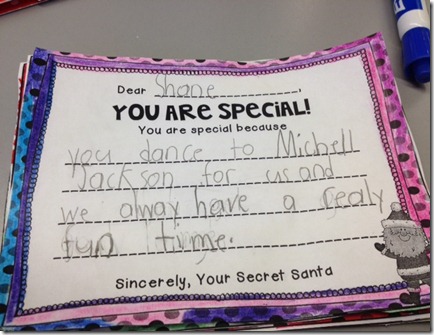 Dear Shane,
YOU ARE SPECIAL!
You are special because
you dance to Michell
Jackson for us and
we alway have a realy
fun time.
Sincerely, Your Secret Santa